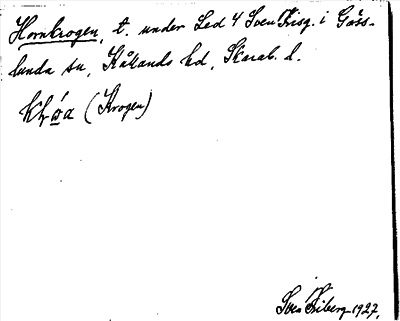 Hornkrogen, t. under Led 4 Sven Krisg. i Gåss-
lunda sn, Kållands hd, Skarab. l.
(Krogen)
Sven Fiberg 1927.